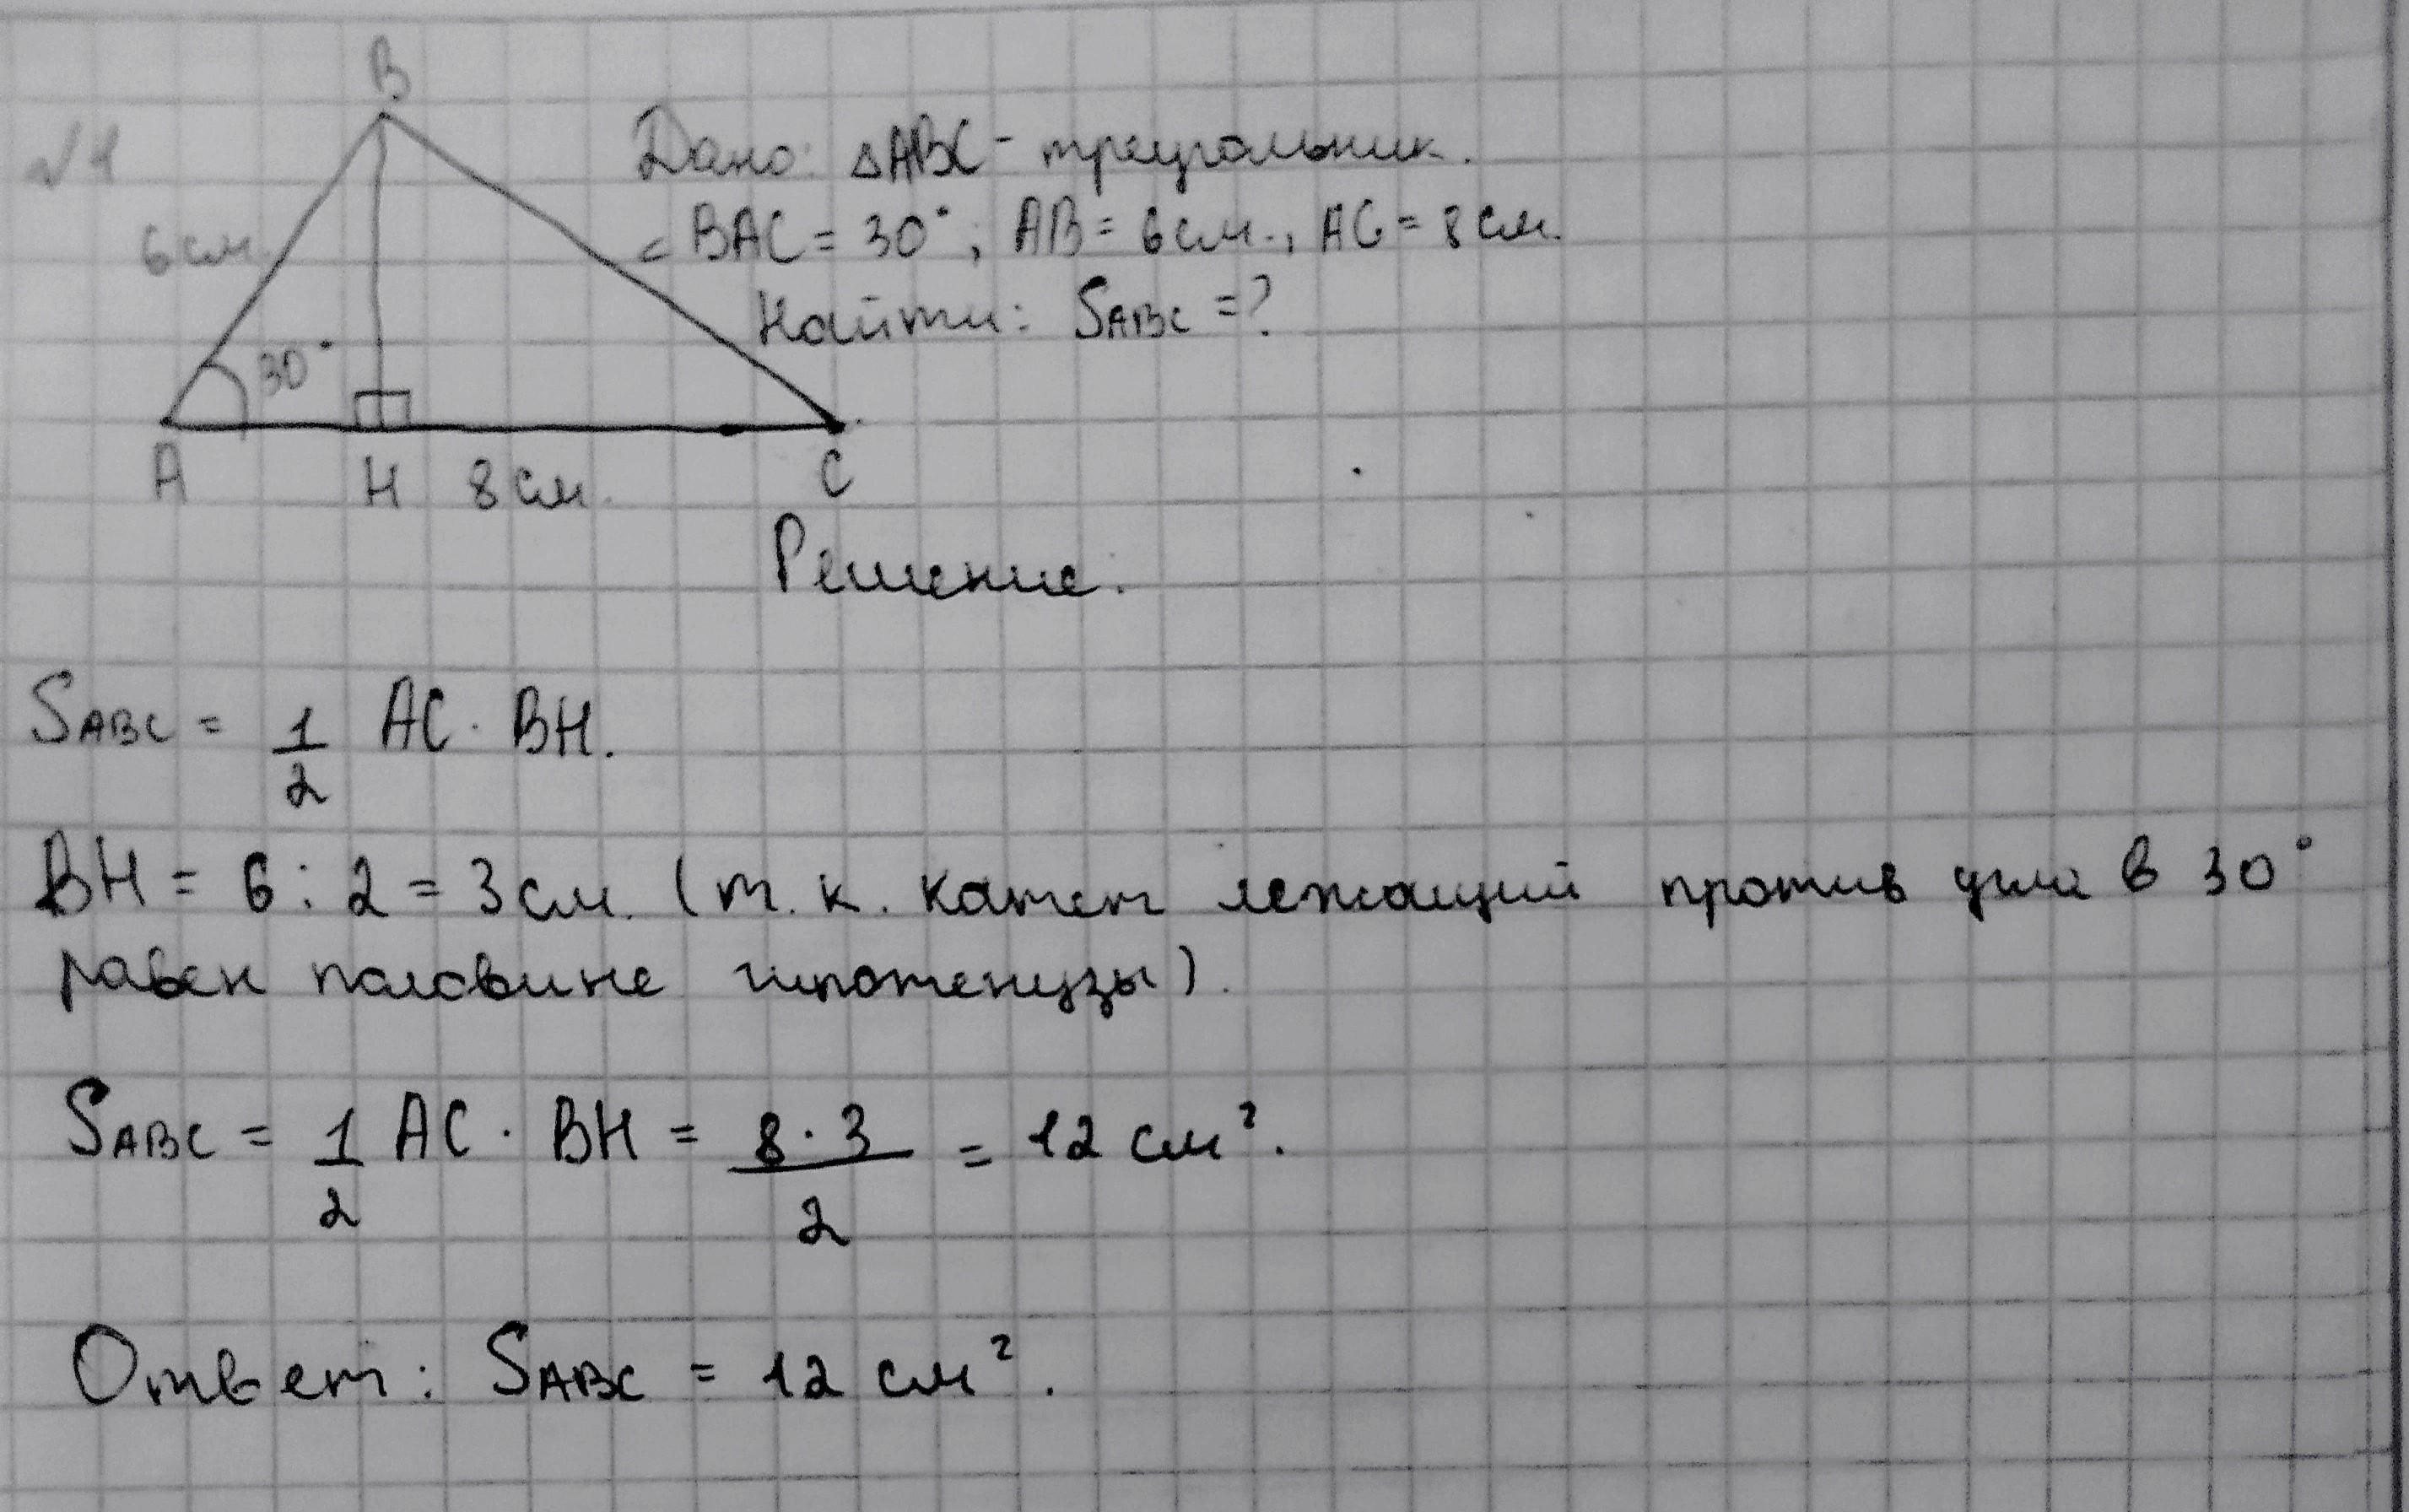 B
№1
Дано: △ABC - треугольник.
6 см.
∠ BAC = 30°; AB = 6 см., AC = 8 см.
Найти: SABC = ?
30°
A H 8 см. C
Решение:
SABC = 1/2 AC · BH.
BH = 6 : 2 = 3 см. (т. к. катет лежащий против угла в 30°
равен половине гипотенузы).
SABC = 1/2 AC · BH = 8 · 3/2 = 12 см².
Ответ: SABC = 12 см².